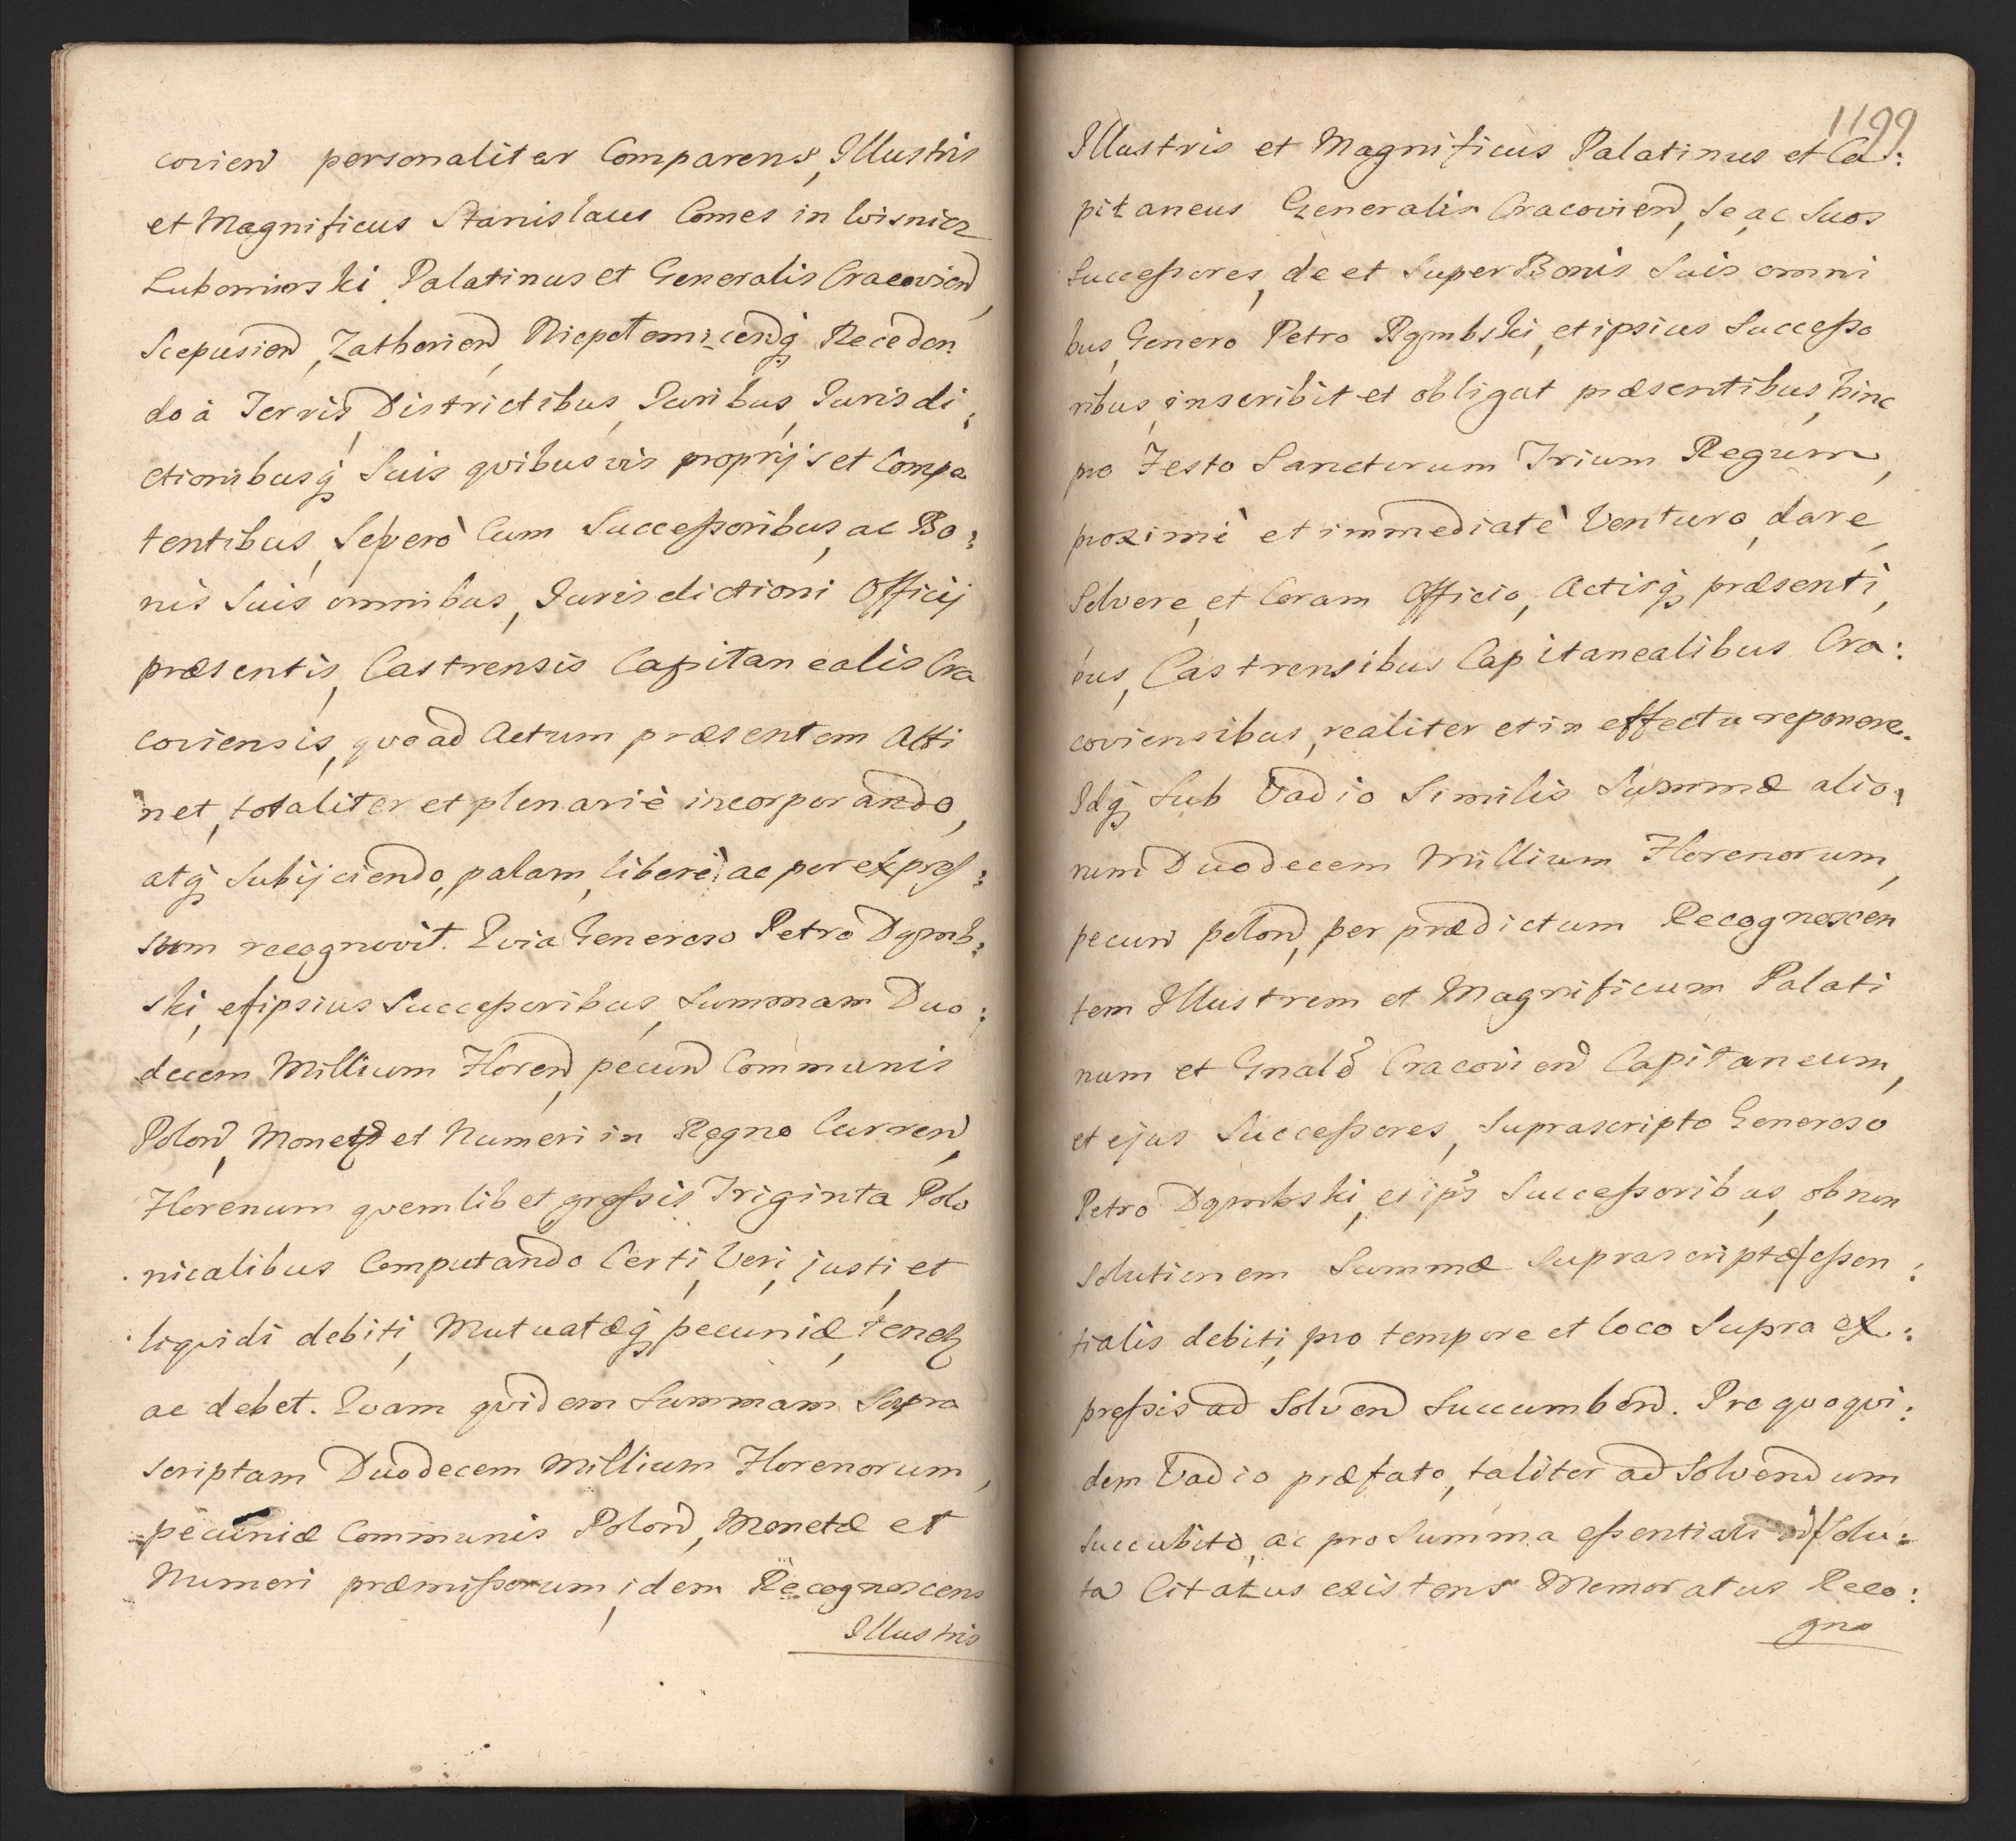 covień personaliter Comparens, Illustris
et Magnificus Stanislaus Comes in Wisnicz
Lubomirski Palatinus et Generalis Cracovień,
Scepusień, Zathorień, Niepotomiceńq́ Receden
do à Terris, Districtibus, Juribus, Jurisdi:
ctionibusq́ Suis qvibusvis proprijs et Compe
tentibus, Se verò Cum Successoribus, ac Bo:
nis Suis omnibus, Jurisdictioni Officij
præsentis, Castrensis Capitanealis Cra
coviensis, qvo ad Actum præsentem Atti
net, totaliter et plenariè incorporando,
atq́ Subijciendo, palam, liberè, ac per expres:
sum recognovit. Qvia Generoso Petro Dąmb:
ski, et ipsius Successoribus, Summam Duo:
decem Millium Floreń, pecuń Communis
Poloń, Monetæ et Numeri in Regno Curreń,
Florenum qvemlibet grossis Triginta Polo
nicalibus Computando Certi, Veri, justi, et
liqvidi debiti, Mutuatæq́ pecuniæ, tenet
ac debet. Qvam qvidem Summam Supra
scriptam Duodecem Millium Florenorum,
pecuniæ Communis Poloń, Monetæ et
Numeri præmissorum, idem Recognoscens
Illustris
1199
Illustris et Magnificus Palatinus et Ca:
pitaneus Generalis Cracovień, Se, ac Suos
Successores, de et Super Bonis Suis omni
bus, Genero Petro Dąmbski, et ipsius Successo
ribus, inscribit et obligat præsentibus, hinc
pro Festo Sanctorum Trium Regum,
proximè et immediatè Venturo, dare,
Solvere, et Coram Officio, Actisq́ præsenti,
bus, Castrensibus Capitanealibus Cra:
coviensibus, realiter et in effectu reponere.
Idq́ Sub Vadio Similis Summæ alio:
rum Duodecem Millium Florenorum,
pecuń poloń, per prædictum Recognoscen
tem Illustrem et Magnificum Palati
num et Gnalē Cracovień Capitaneum,
et ejus Successores, Suprascripto Generoso
Petro Dąmbski, et ip's Successoribus, ob non
Solutionem Summæ Suprascriptæ, essen:
tialis debiti, pro tempore et loco Supra ex:
pressis ad Solveń Succumbeń. Pro qvo qvi:
dem Vadio præfato, taliter ad Solvendum
Succubito, ac pro Summa essentiali Solu:
ta Citatus existens Memoratus Reco:
gno